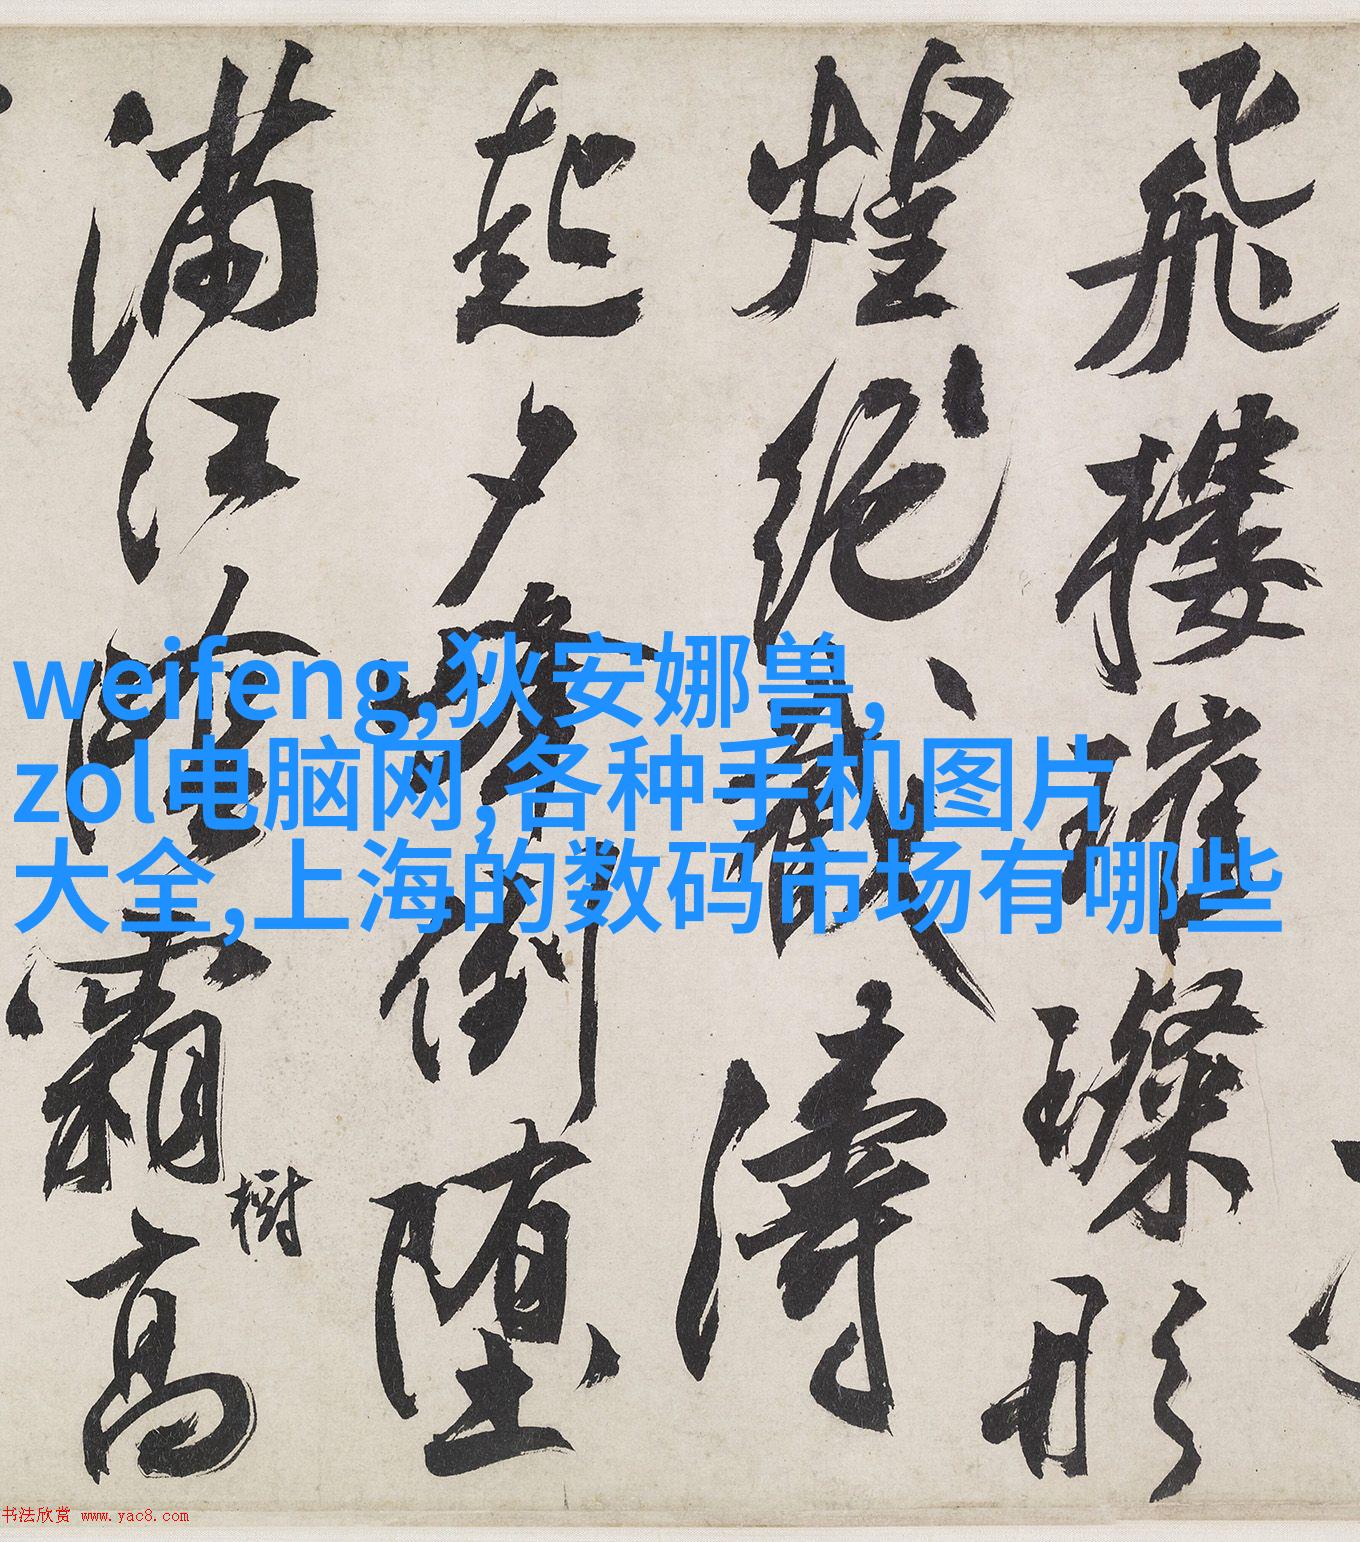 飛樓璀璨彤
煌絕濤
起夕倒墮
滿江霜樹高
weifeng,狄安娜兽,
zol电脑网,各种手机图片
大全,上海的数码市场有哪些
书法欣赏 www.yac8.com